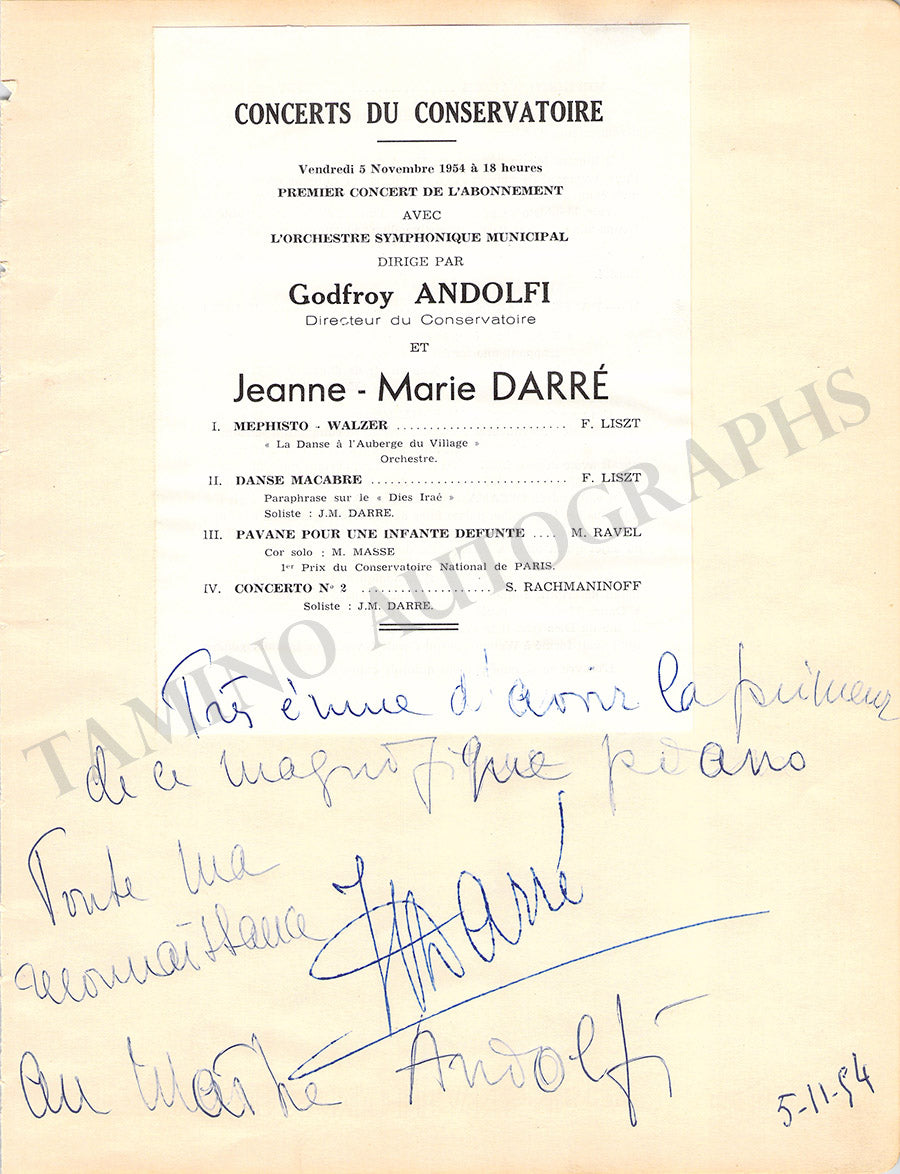 CONCERTS DU CONSERVATOIRE
Vendredi 5 Novembre 1954 à 18 heures
PREMIER CONCERT DE L'ABONNEMENT
AVEC
L'ORCHESTRE SYMPHONIQUE MUNICIPAL
DIRIGE PAR
Godfroy ANDOLFI
Directeur du Conservatoire
ET
Jeanne - Marie DARRÉ
I. MEPHISTO - WALZER .......................... F. LISZT
« La Danse à l'Auberge du Village »
Orchestre.
II. DANSE MACABRE ............................. F. LISZT
Paraphrase sur le « Dies Iraé »
Soliste : J.M. DARRE.
III. PAVANE POUR UNE INFANTE DEFUNTE .... M. RAVEL
Cor solo : M. MASSE
1er Prix du Conservatoire National de PARIS.
IV. CONCERTO No 2 .................... S. RACHMANINOFF
Soliste : J.M. DARRE.
TAMINO AUTOGRAPHS
Très émue d'avoir la primeur
de ce magnifique piano
Toute ma
reconnaissance
JMDarré
au Maître Andolfi
5-11-54